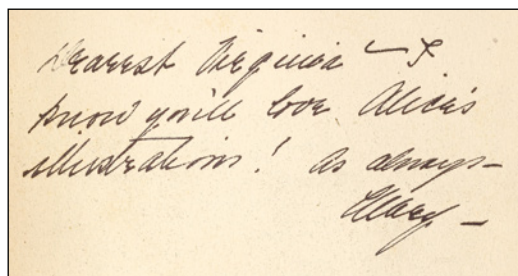 Dearest Virginia — I
know you'll love Alice's
illustrations! As always –
Mary –